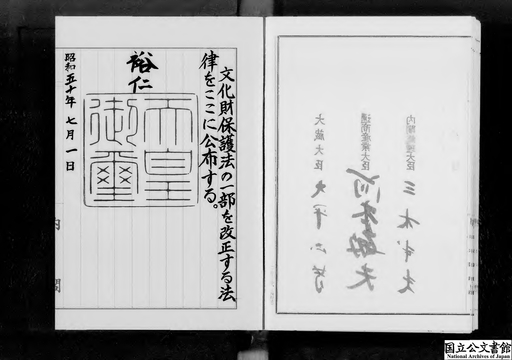 内閣総理大臣 三木武夫
通商産業大臣 河本敏夫
大蔵大臣 大平正芳
文化財保護法の一部を改正する法
律をここに公布する。
裕仁
天皇
御璽
昭和五十年 七月一日
内 閣
国立公文書館
National Archives of Japan